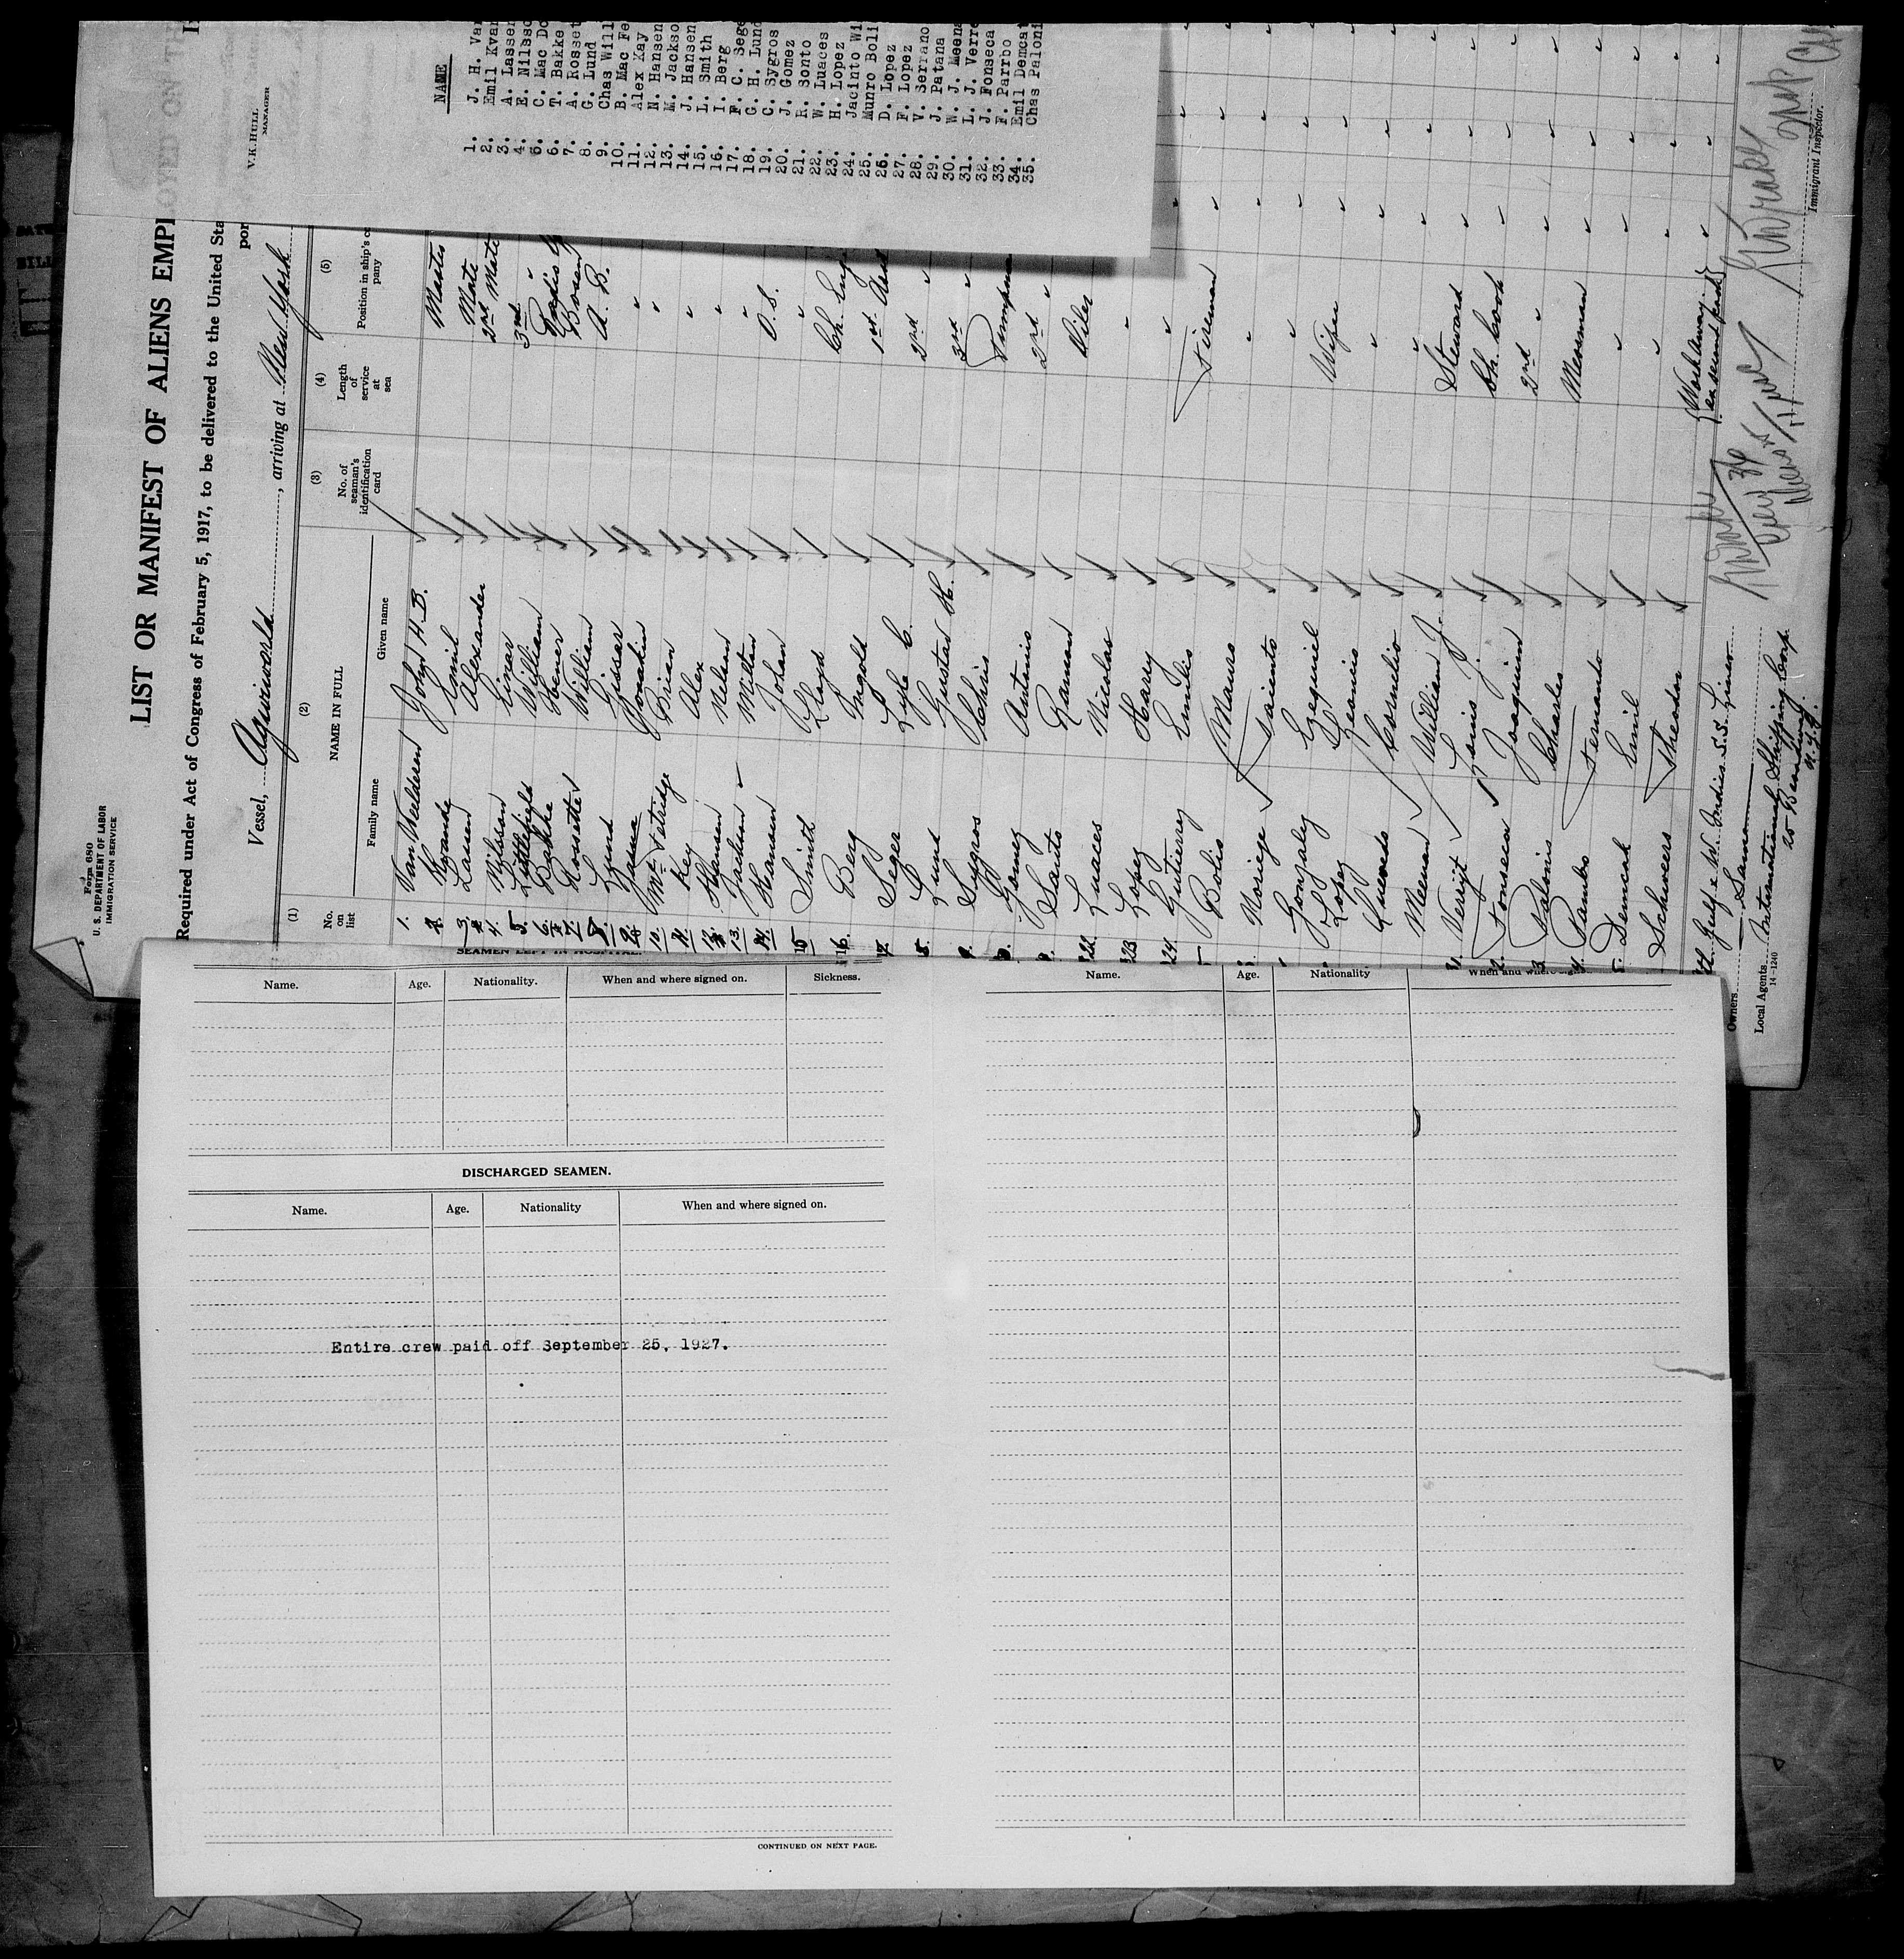 Form 680
U. S. DEPARTMENT OF LABOR
IMMIGRATION SERVICE
LIST OR MANIFEST OF ALIENS EMPL
OYED ON TH
Required under Act of Congress of February 5, 1917, to be delivered to the United Sta
Vessel, Agwiworld, arriving at New York
por
(1)
No. on list
(2)
NAME IN FULL
Family name
Given name
(3)
No. of seaman's identification card
(4)
Length of service at sea
(5)
Position in ship's com
pany
1. Van Weelderen John H. B. Master
2. Kvande Emil Mate
3. Lassen Alexander 2nd Mate
4. Nilsson Einar 3rd "
5. Littlefield William Radio
6. Bakke Bosun
7. Rossetter William A. B.
8. Lund Gissar "
9. Joachin "
10. Mc Fetridge Brian "
11. Key Alex "
12. Hansen Nelem "
13. Jackson Milton O. S.
14. Hansen Johan "
15 Smith Lloyd Ch. Eng
16. Berg Ingolf 1st Asst
17. Seger Lyle C. 2nd "
18. Lund Gustav H. 3rd "
Sygros Chris Pumpman
Gomez Antonio 2nd "
Santo Ramon Oiler
22. Luaces Nicolas "
23 Lopez Harry "
24. Gutierrez Emilio Fireman
Bolio Mauro "
Noriega Jacinto "
Gonzalez Ezequiel Wiper
Lopez "
Quevedo Cornelio "
Meenan William J. Steward
Verrijt Louis J. Ch. Cook
2. Fonseca Joaquim 2nd "
3. Palonis Charles Messman
4. Pambo Fernando "
5. Demcak Emil "
Schweers Theodor Workaway
Owners Gulf & W. Indies S.S. Lines
Same
Local Agents International Shipping Corp
25 Beaver
N.Y.C.
14-1240
Immigrant Inspector.
V.K.HULL
MANAGER
NAME
1. J. H. Van
2. Emil Kvan
3. A. Lassen
4. E. Nilsso
5. C. Mac Do
6. T. Bakke
7. A. Rosset
8. G. Lund
9. Chas Will
10. B. Mac Fe
11. Alex Kay
12. N. Hansen
13. M. Jackso
14. J. Hansen
15. L. Smith
16. I. Berg
17. F. C. Sege
18. G. H. Lund
19. C. Sygros
20. J. Gomez
21. R. Sonto
22. W. Luaces
23. H. Lopez
24. Jacinto Wi
25. Munro Boli
26. D. Lopez
27. F. Lopez
28. V. Serrano
29. J. Patana
30. W. J. Meena
31. L. J. Verre
32. J. Fonseca
33. F. Parrbo
34. Emil Demcat
35. Chas Paloni
SEAMEN LEFT IN HOSPITAL.
Name. Age. Nationality. When and where signed on. Sickness.
DISCHARGED SEAMEN.
Name. Age. Nationality When and where signed on.
Entire crew paid off September 25, 1927.
CONTINUED ON NEXT PAGE.
Name. Age. Nationality When and where